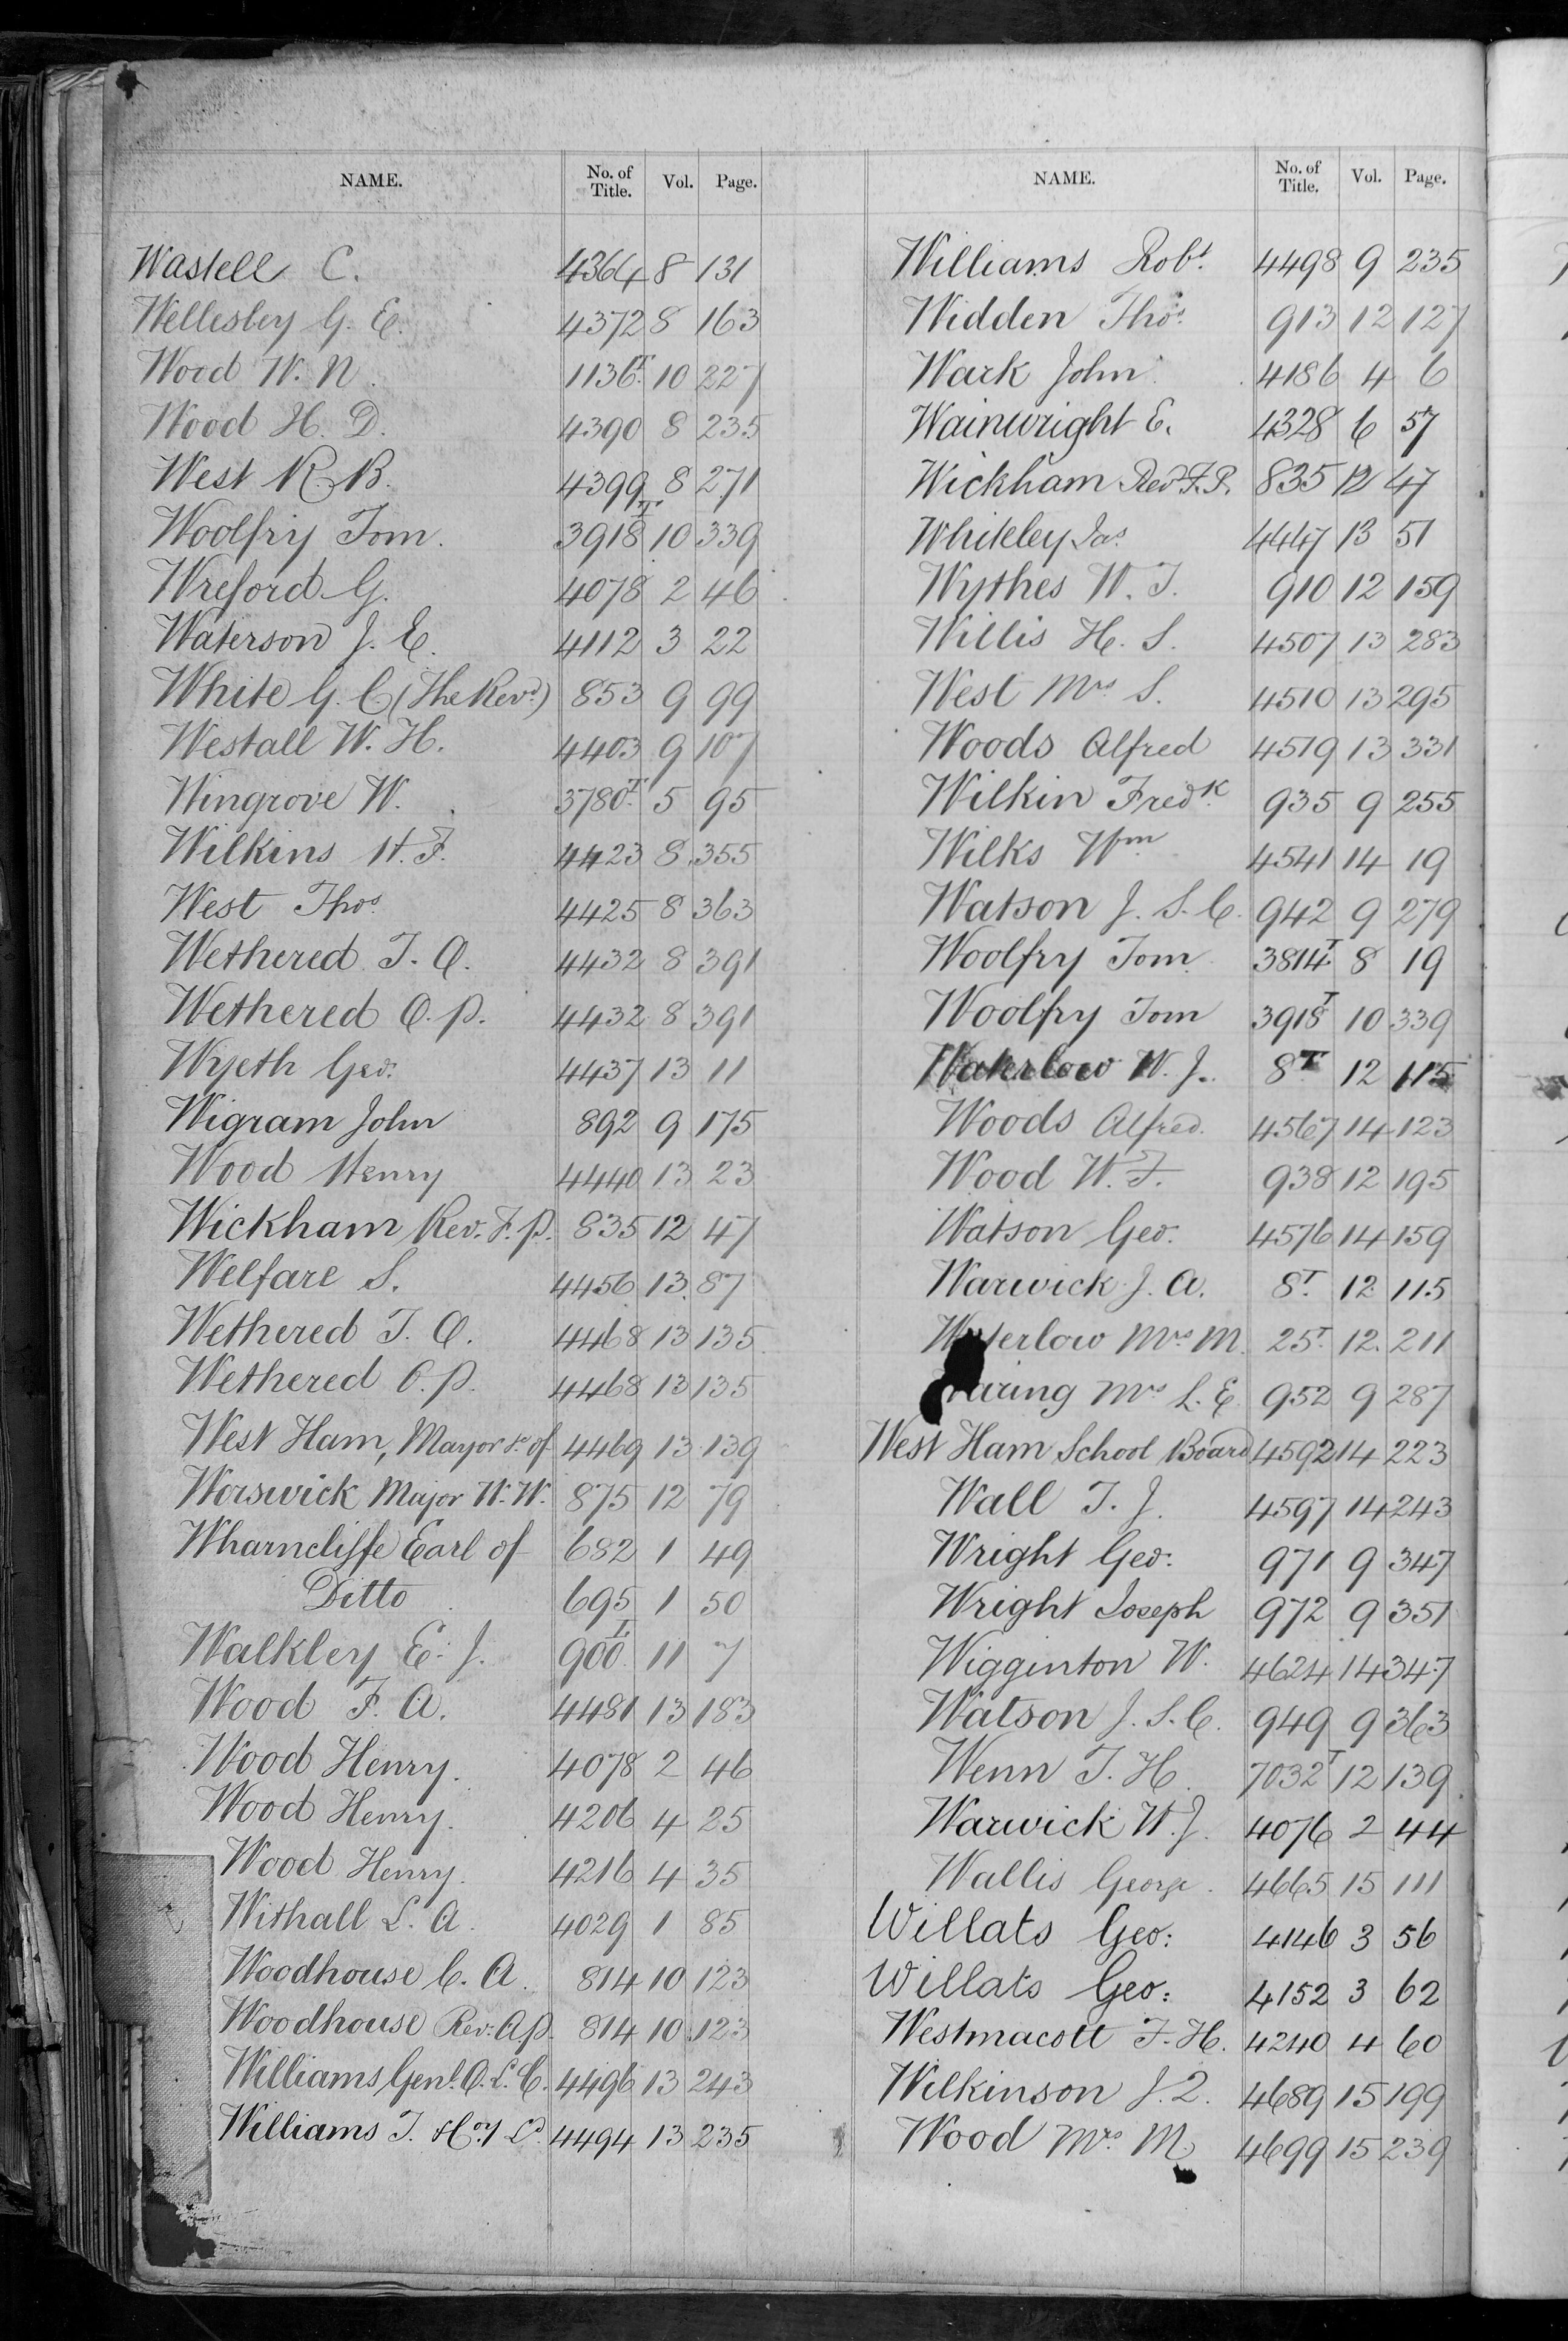 NAME. No. of Title. Vol. Page.
Wastell C. 4364 8 131
Wellesley G. E. 4372 8 163
Wood W. N. 1136T. 10 227
Wood H. D. 4390 8 235
West R. B. 4399 8 271
Woolfry Tom. 3918T 10 339
Wreford G. 4078 2 46
Waterson J. E. 4112 3 22
White G. C. (The Revd.) 853 9 99
Westall W. H. 4403 9 107
Wingrove W. 3780T. 5 95
Wilkins H. F. 4423 8 355
West Thos. 4425 8 363
Wethered T. O. 4432 8 391
Wethered O. P. 4432 8 391
Wyeth Geo. 4437 13 11
Wigram John 892 9 175
Wood Henry 4440 13 23
Wickham Rev. F. P. 835 12 47
Welfare S. 4456 13 87
Wethered T. O. 4468 13 135
Wethered O. P. 4468 13 135
West Ham, Mayor &c of 4469 13 139
Worswick Major W. W. 875 12 79
Wharncliffe Earl of 682 1 49
Ditto 695 1 50
Walkley E. J. 900T 11 7
Wood F. A. 4481 13 183
Wood Henry. 4078 2 46
Wood Henry. 4206 4 25
Wood Henry. 4216 4 35
Withall L. A. 4029 1 85
Woodhouse C. A. 814 10 123
Woodhouse Rev: A.P. 814 10 123
Williams Genl. O. L. C. 4496 13 243
Williams T. 4494 13 235
NAME. No. of Title. Vol. Page.
Williams Robt. 4498 9 235
Widden Thos. 913 12 127
Wark John 4186 4 6
Wainwright E. 4328 6 57
Wickham Rev F. P. 835 12 47
Whiteley Jas. 4447 13 51
Wythes W. T. 910 12 159
Willis H. S. 4507 13 283
West Mrs S. 4510 13 295
Woods Alfred 4519 13 331
Wilkin Fredk. 935 9 255
Wilks Wm 4541 14 19
Watson J. S. C. 942 9 279
Woolfry Tom. 3814T. 8 19
Woolfry Tom 3918T 10 339
Waterlow W. J. 8T. 12 115
Woods Alfred. 4567 14 123
Wood W. F. 938 12 195
Watson Geo. 4576 14 159
Warwick J. A. 8T. 12 115
Waterlow Mrs M. 25T. 12. 211
aring Mrs L. E. 952 9 287
West Ham School Board 4592 14 223
Wall T. J. 4597 14 243
Wright Geo: 971 9 347
Wright Joseph 972 9 351
Wigginton W. 4624 14 347
Watson J. S. C. 949 9 363
Wenn T. H. 7032T 12 139
Warwick W. J. 4076 2 44
Wallis George. 4665 15 111
Willats Geo: 4146 3 56
Willats Geo: 4152 3 62
Westmacott F. H. 4240 4 60
Wilkinson J. 2. 4689 15 199
Wood Mrs M. 4699 15 239